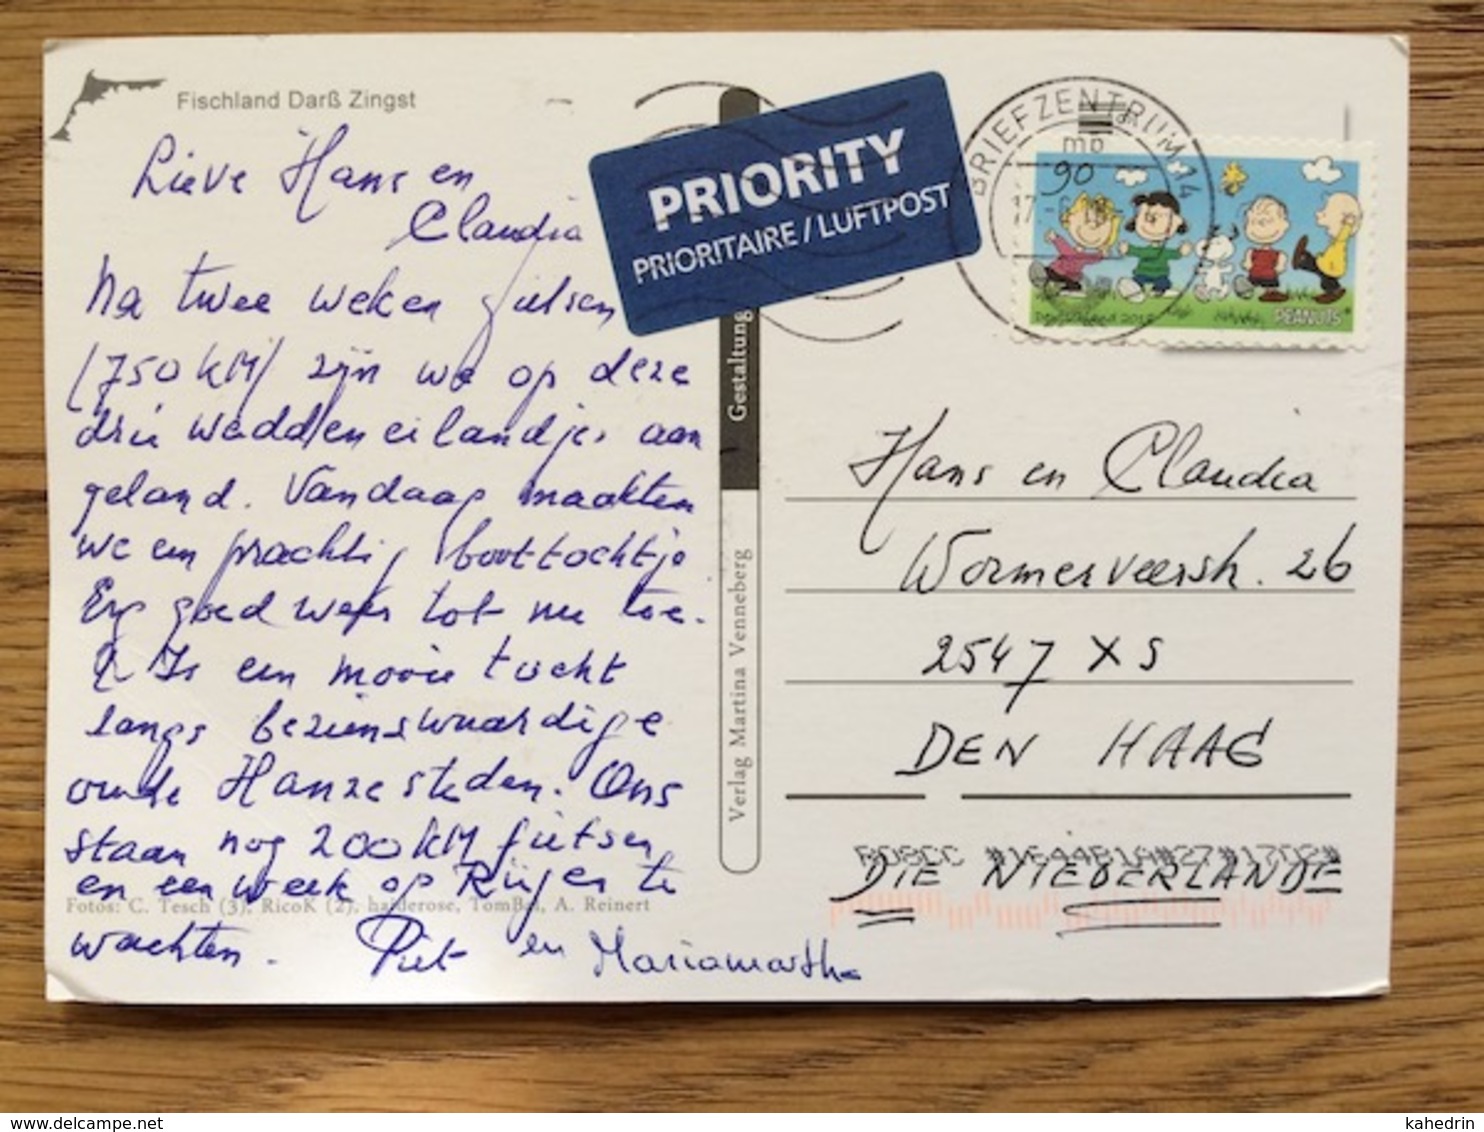 Fischland Darß Zingst
Lieve Hans en
Claudia
Na twee weken fietsen
(750 KM) zijn we op deze
drie waddeneilandjes aan
geland. Vandaag maakten
we een prachtig boottochtje
Erg goed weer tot nu toe.
Is een mooie tocht
langs bezienswaardige
oude Hanzesteden. Ons
staan nog 200 KM fietsen
en een week op Rügen te
Fotos: C. Tesch (3), RicoK (2), haiderose, TomBal, A. Reinert
wachten. Piet en Mariamartha
Verlag Martina Venneberg
Gestaltung
PRIORITY
PRIORITAIRE / LUFTPOST
BRIEFZENTRUM
mb
17.-6.18
90
Deutschland 2018
PEANUTS
Hans en Claudia
Wormerveerstr. 26
2547 XS
DEN HAAG
DIE NIEDERLANDE
© www.delcampe.net
kahedrin